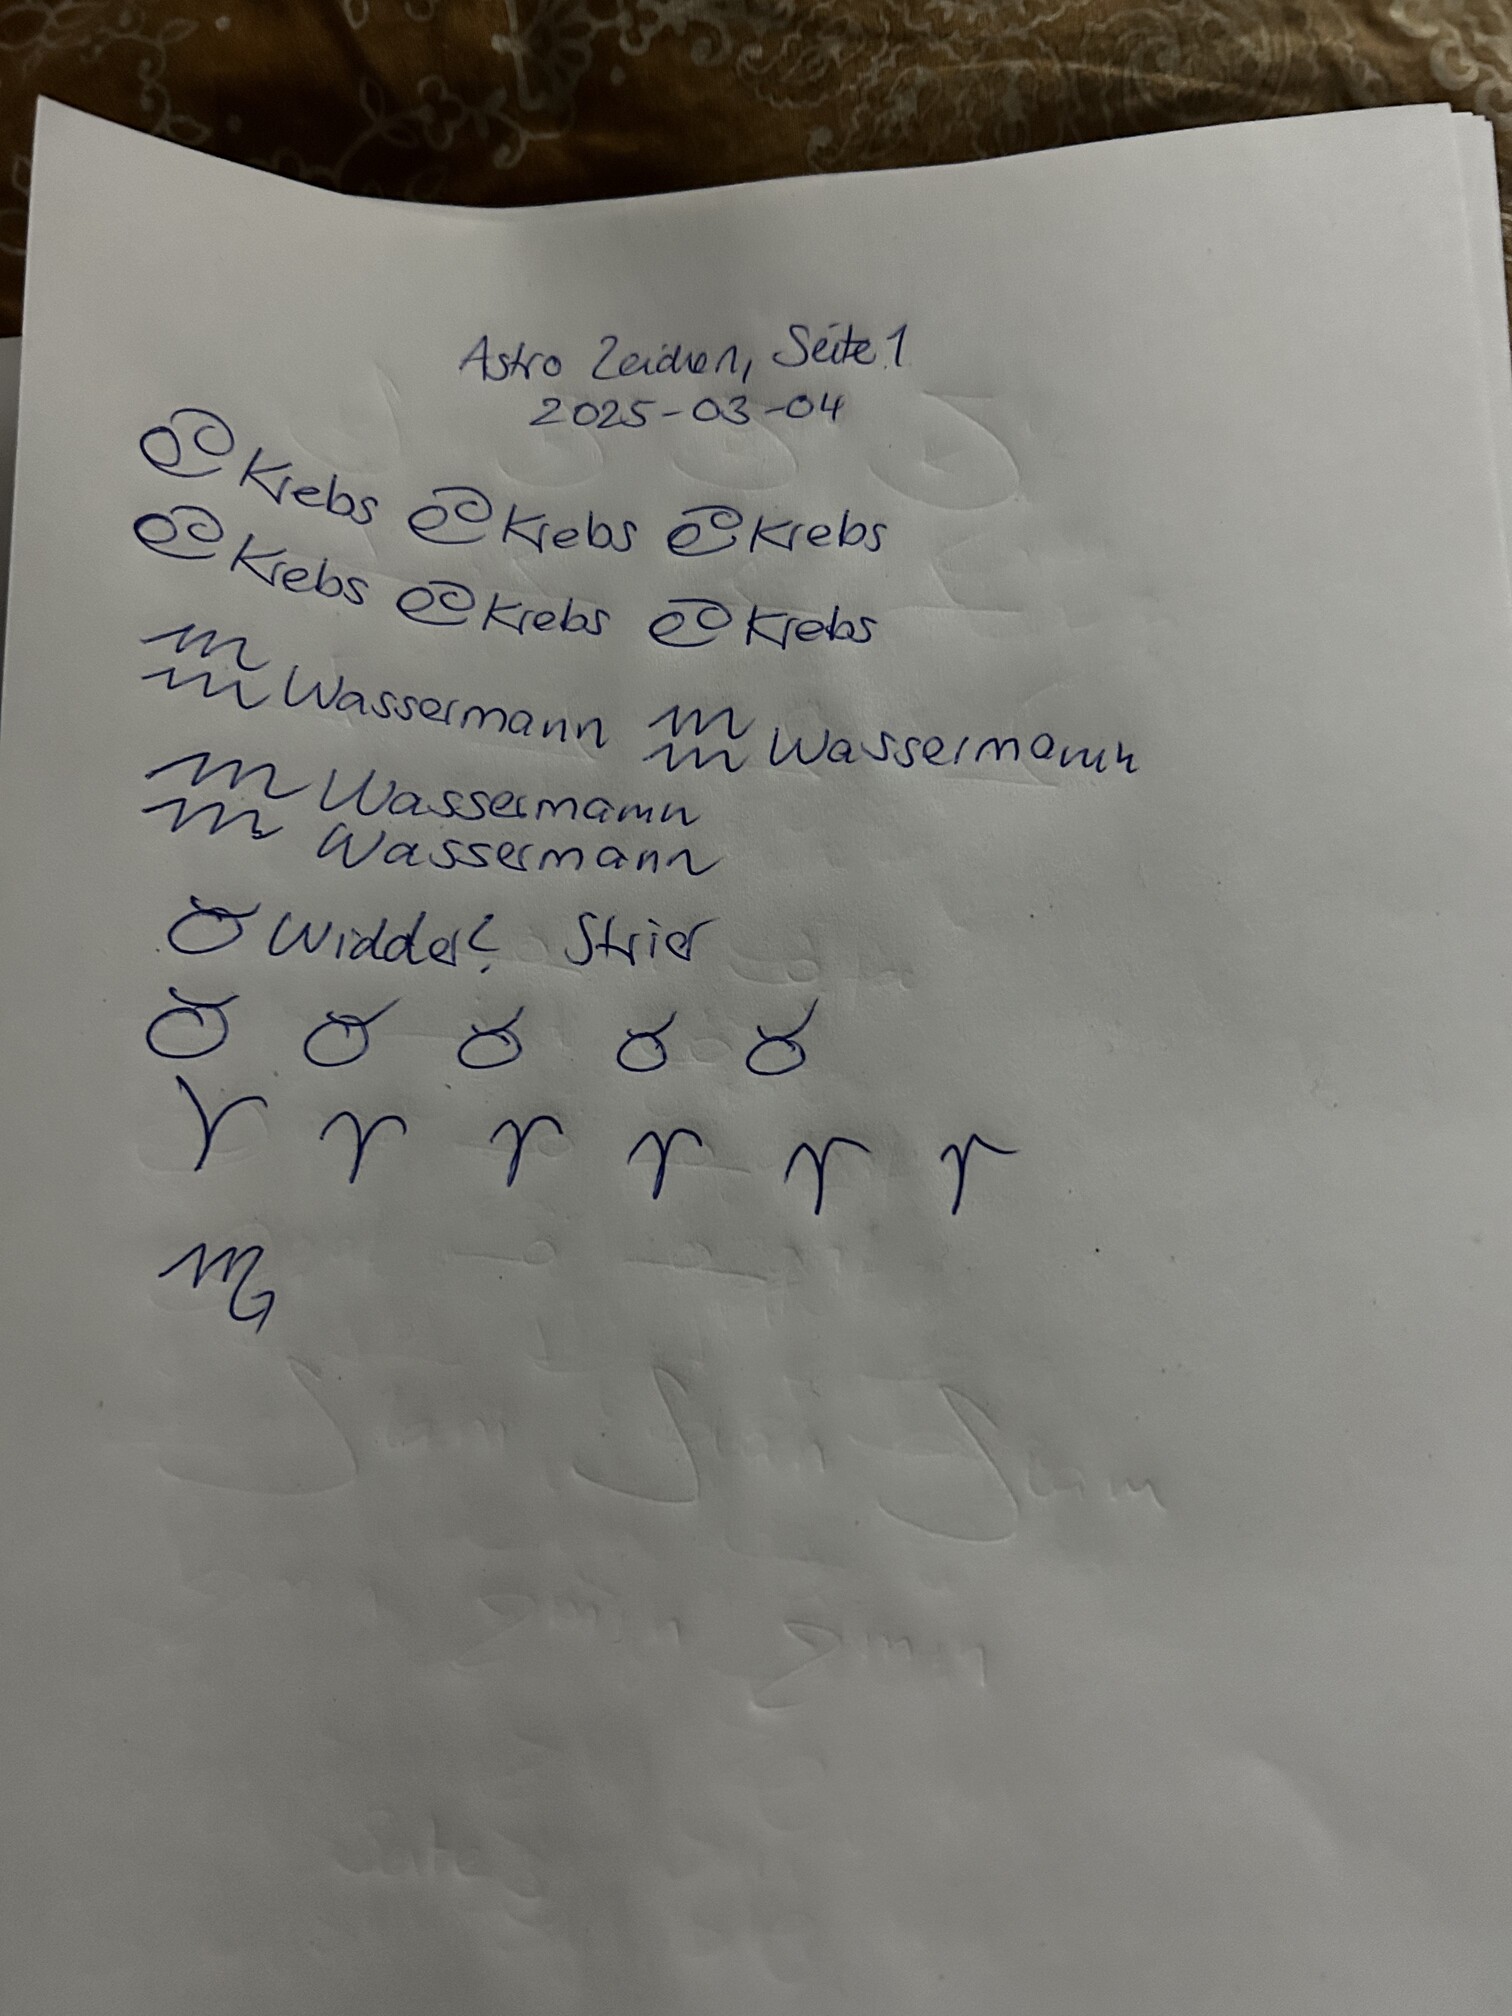 Astro Zeichen, Seite 1
2025-03-04
♋ Krebs ♋ Krebs ♋ Krebs
♋ Krebs ♋ Krebs ♋ Krebs
♒ Wassermann ♒ Wassermann
♒ Wassermann
Wassermann
♉ Widder? Strier
♉ ♉ ♉ ♉ ♉
♈ ♈ ♈ ♈ ♈ ♈
♍